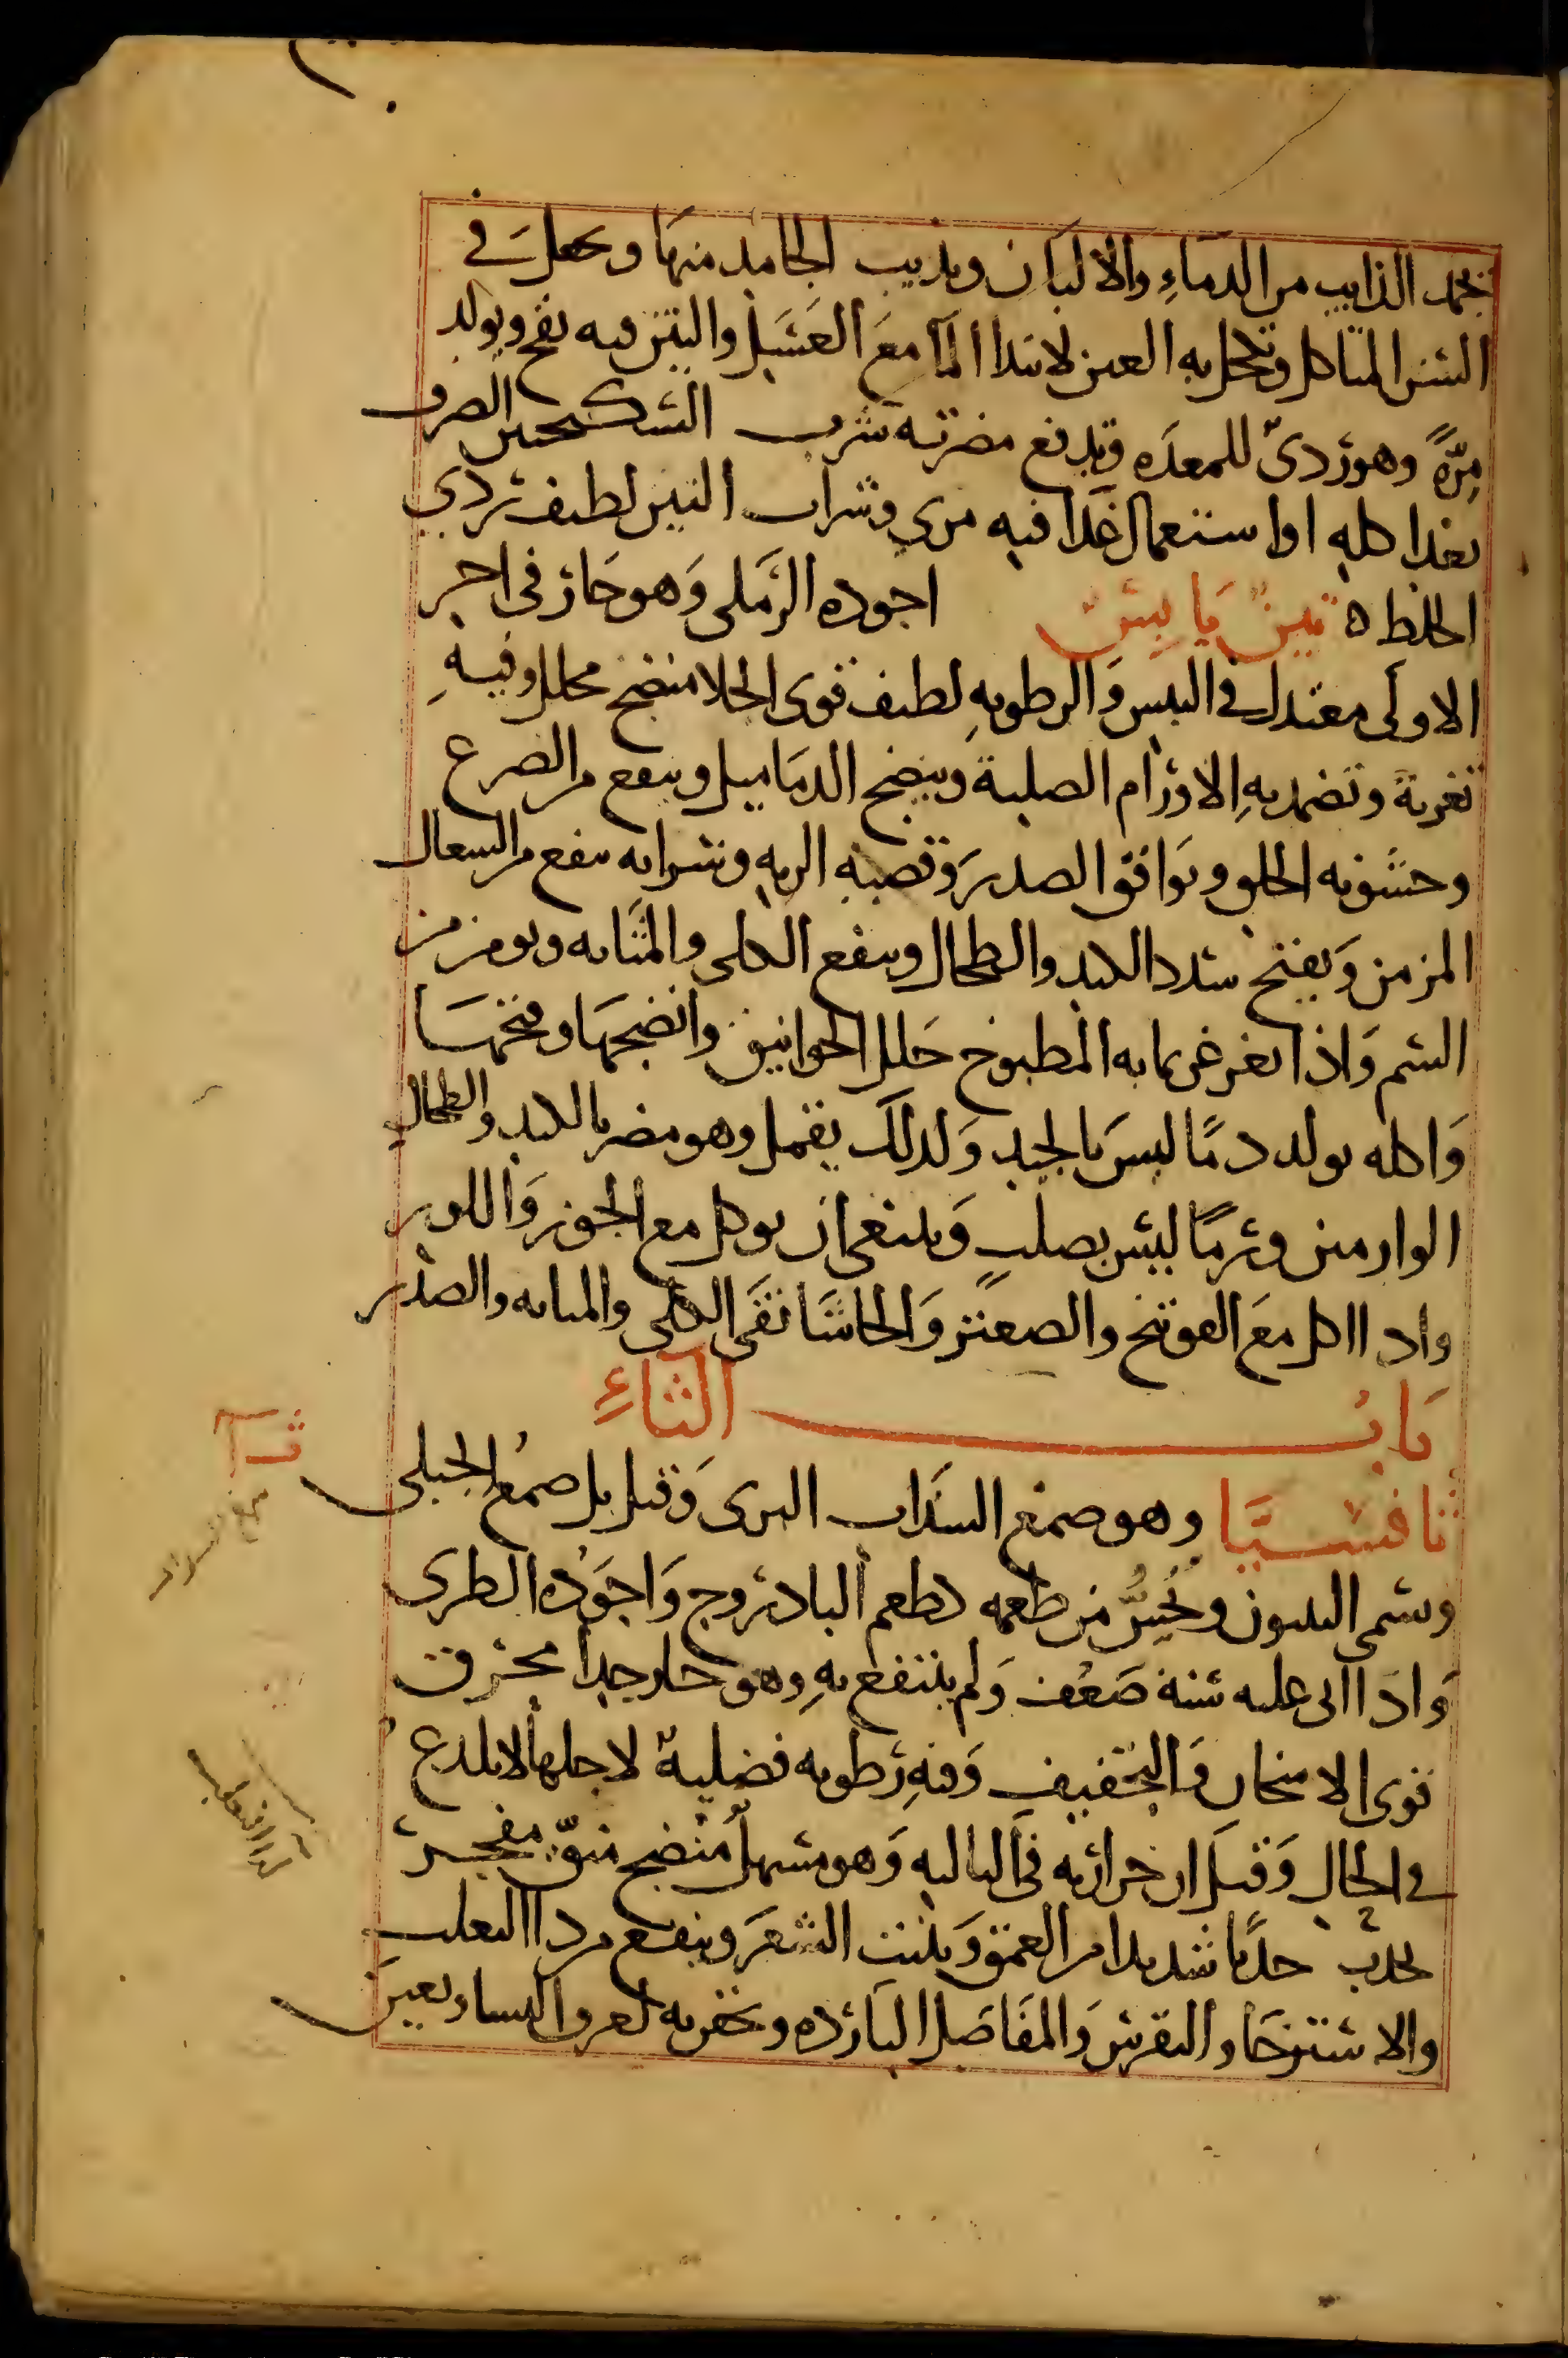 يجمد الذايب من الدماءِ والالبان ويذيب الجامد منها ويجعل في
السن المتاكل ويكحل به العين لابتدا المآ مع العسل والتين فيه نفخ ويولد
مِرّةً وهو ردىّ للمعده ويدفع مضرته شرب السكنجبين الصرف
بعد اكله او استعمال غذا فيه مرى وشراب التين لطيف ردي
الخلط ه تين يابس اجوده الرملى وهو حار في اخر
الاولى معتدل في اليبس والرطوبهِ لطيف قوى الجلا منضج محلل وفيهِ
تغرية وتضمد بهِ الاورام الصلبة وينضج الدماميل وينفع من الصرع
وخشونه الحلق ويوافق الصدر وقصبه الريه وشرابه ينفع من السعال
المزمن ويفتح سدد الكبد والطحال وينفع الكلى والمثانه ويومن من
السم واذا تغرغر بمايه المطبوخ حلل الخوانيق وانضجها وفتحها
واكله يولد دمًا ليس بالجيد ولذلك يقمل وهو مضر بالكبد والطحال
الوارمين ورمًا ليس بصلبٍ وينبغى ان يوكل مع الجوز واللوز
واذا اكل مع الفوتنج والصعتر والحاشا نقى الكلى والمثانه والصدر
باب الثاءِ
ثا
ثافسيَّا وهو صمغ السذاب البرى وقيل بل صمغ الجبلى
صمغ السداب
وسمى اليبنون ويحَسُّ من طعمه كطعم البادروج واجوده الطرى
واذا اتى عليه سنة ضعف ولم ينتفع بهِ وهو حار جدا محرق
قوى الاسخان والتجفيف وفيهِ رطوبه فضلية لاجلها لا يلدع
في الحال وقيل ان حرارته في الثالثه وهو مسهل منضج مقوّ مفجر
يجذب جذبًا شديدا من العمق وينبت الشعر وينفع من دا الثعلب
لدا الثعلب
والاسترخا والنقرس والمفاصل البارده ويحقن به لعرق النسا ويعين